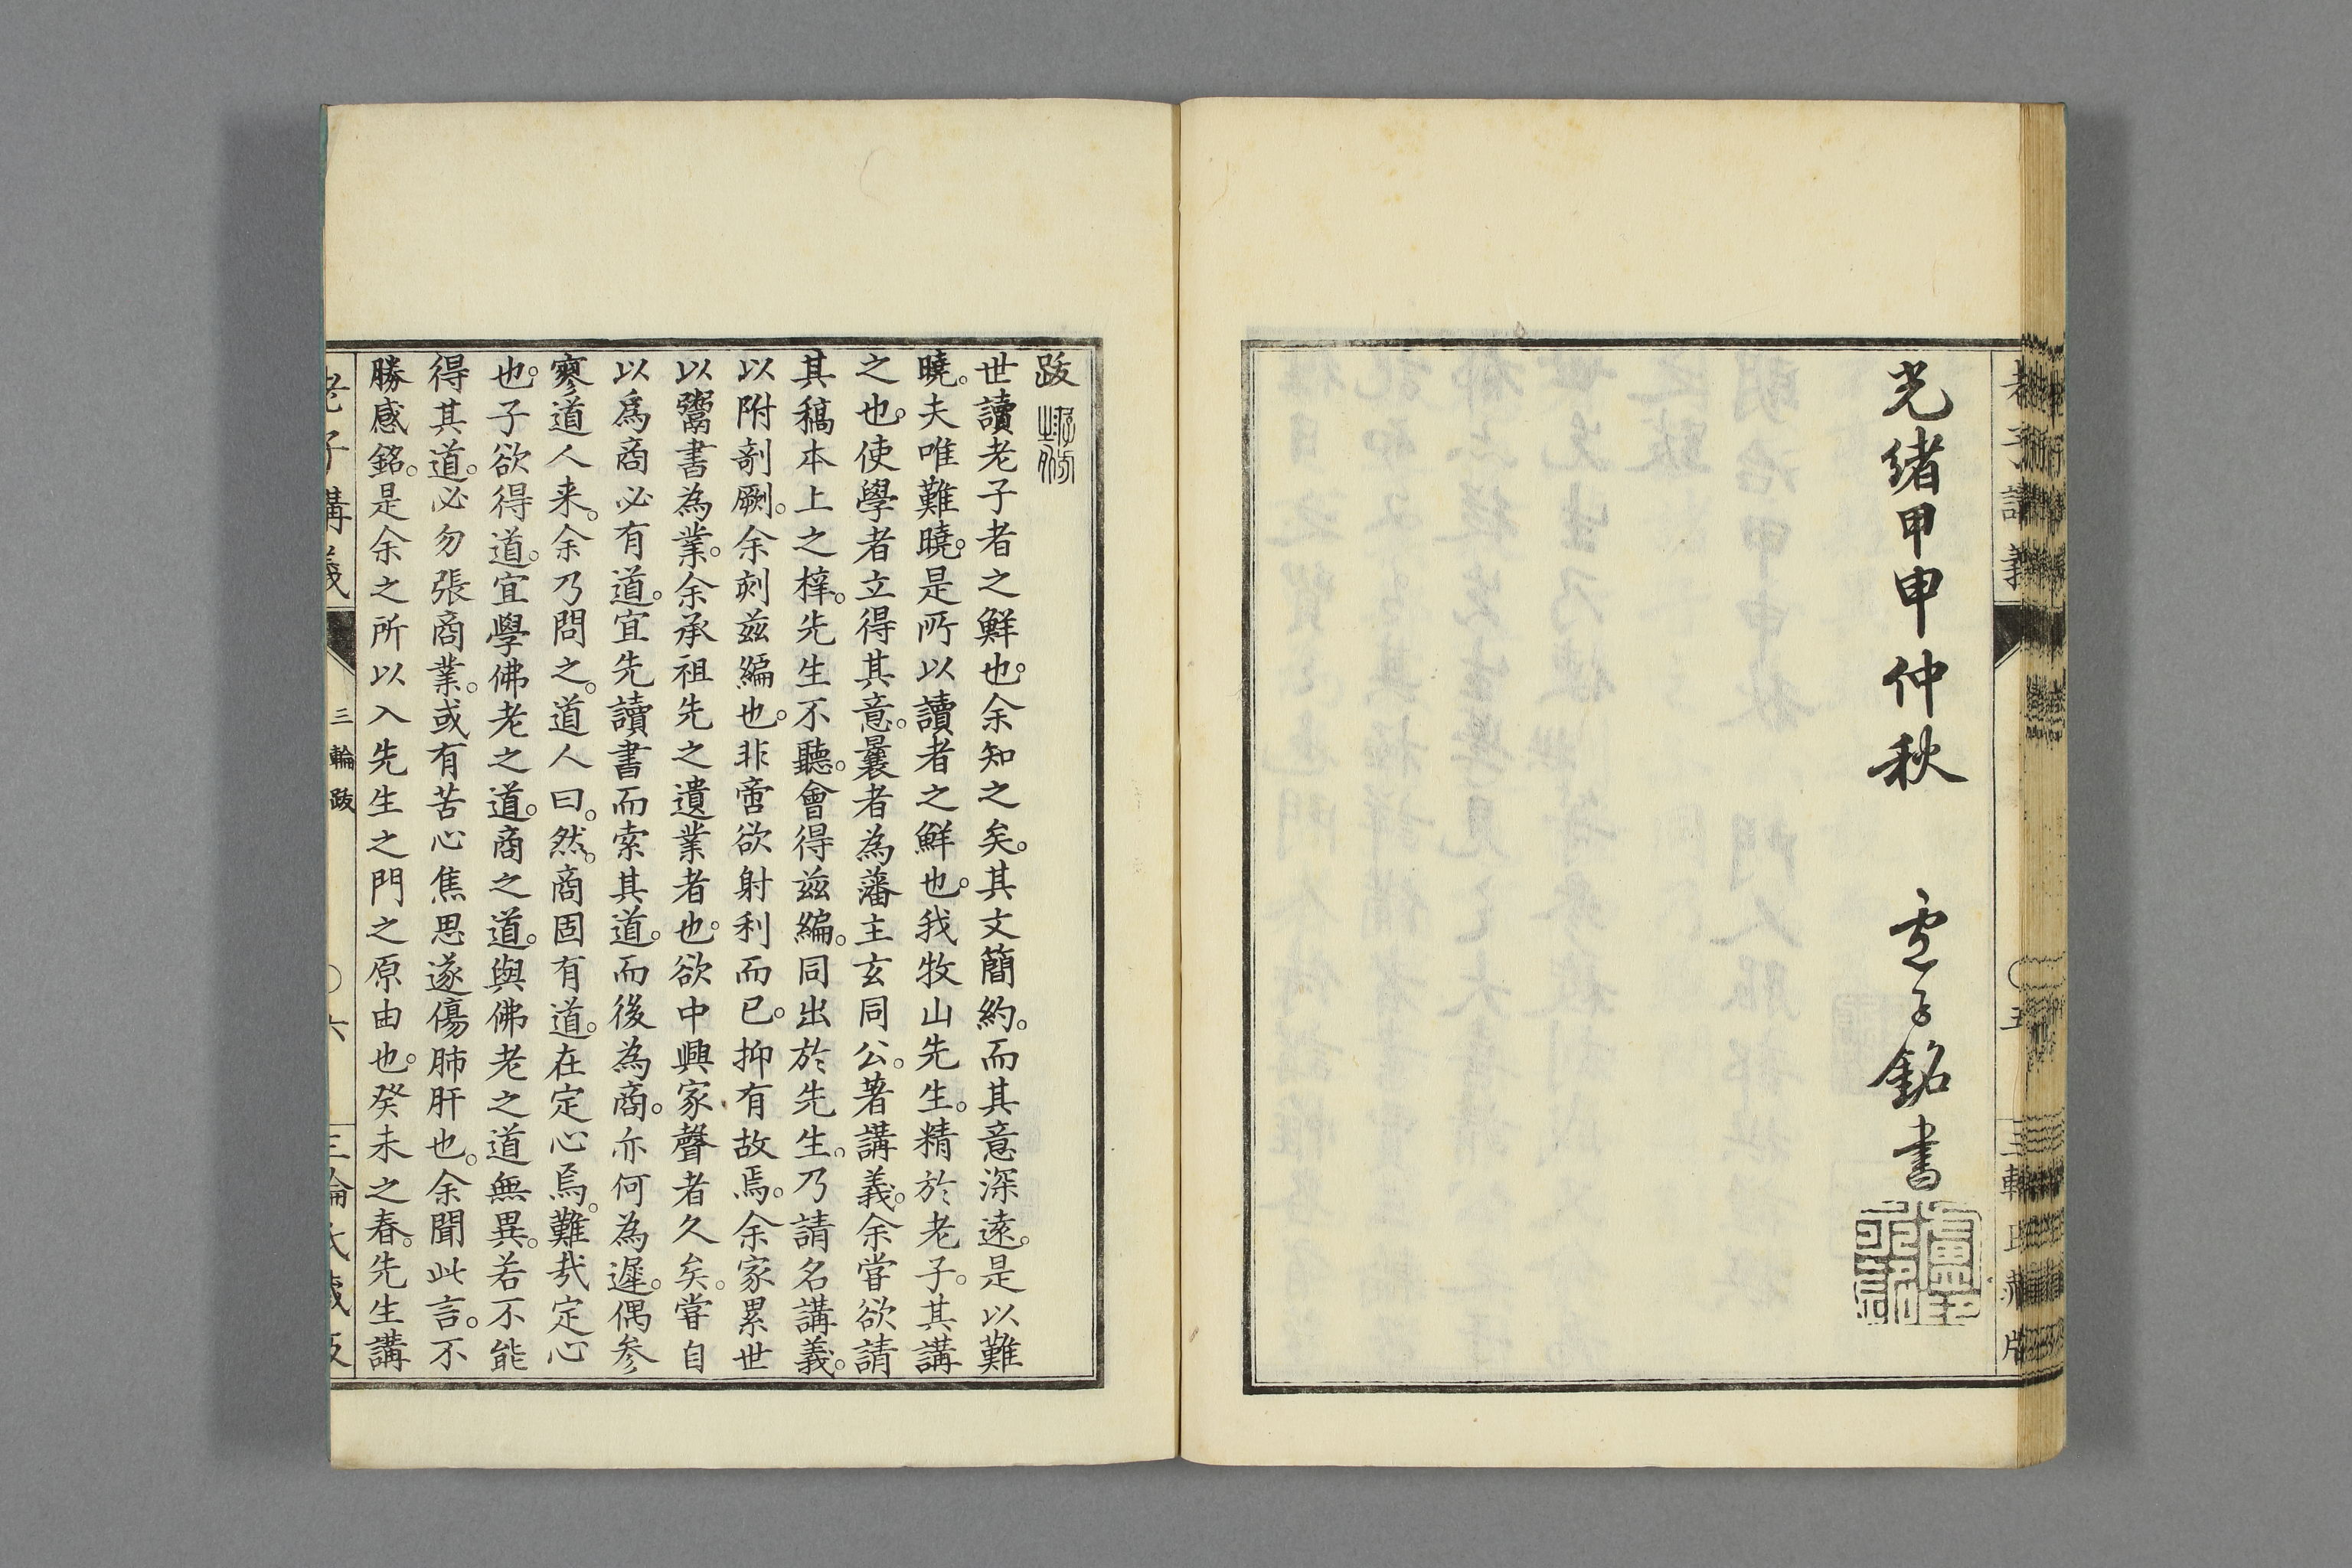 光緒甲申仲秋 雪子銘書
老子講義 ○五 三輪氏藏版
跋
世讀老子者之鮮也。余知之矣。其文簡約。而其意深遠。是以難
曉。夫唯難曉。是所以讀者之鮮也。我牧山先生。精於老子。其講
之也。使學者立得其意。曩者為藩主玄同公。著講義。余嘗欲請
其稿本上之梓。先生不聽。會得茲編。同出於先生。乃請名講義。
以附剞劂。余刻茲編也。非啻欲射利而已。抑有故焉。余家累世
以鬻書為業。余承祖先之遺業者也。欲中興家聲者久矣。嘗自
以爲商必有道。宜先讀書而索其道。而後為商。亦何為遲。偶參
寥道人来。余乃問之。道人曰。然。商固有道。在定心焉。難哉定心
也。子欲得道。宜學佛老之道。商之道。與佛老之道無異。若不能
得其道。必勿張商業。或有苦心焦思遂傷肺肝也。余聞此言。不
勝感銘。是余之所以入先生之門之原由也。癸未之春。先生講
老子講義 三輪跋 ○六 三輪氏藏版